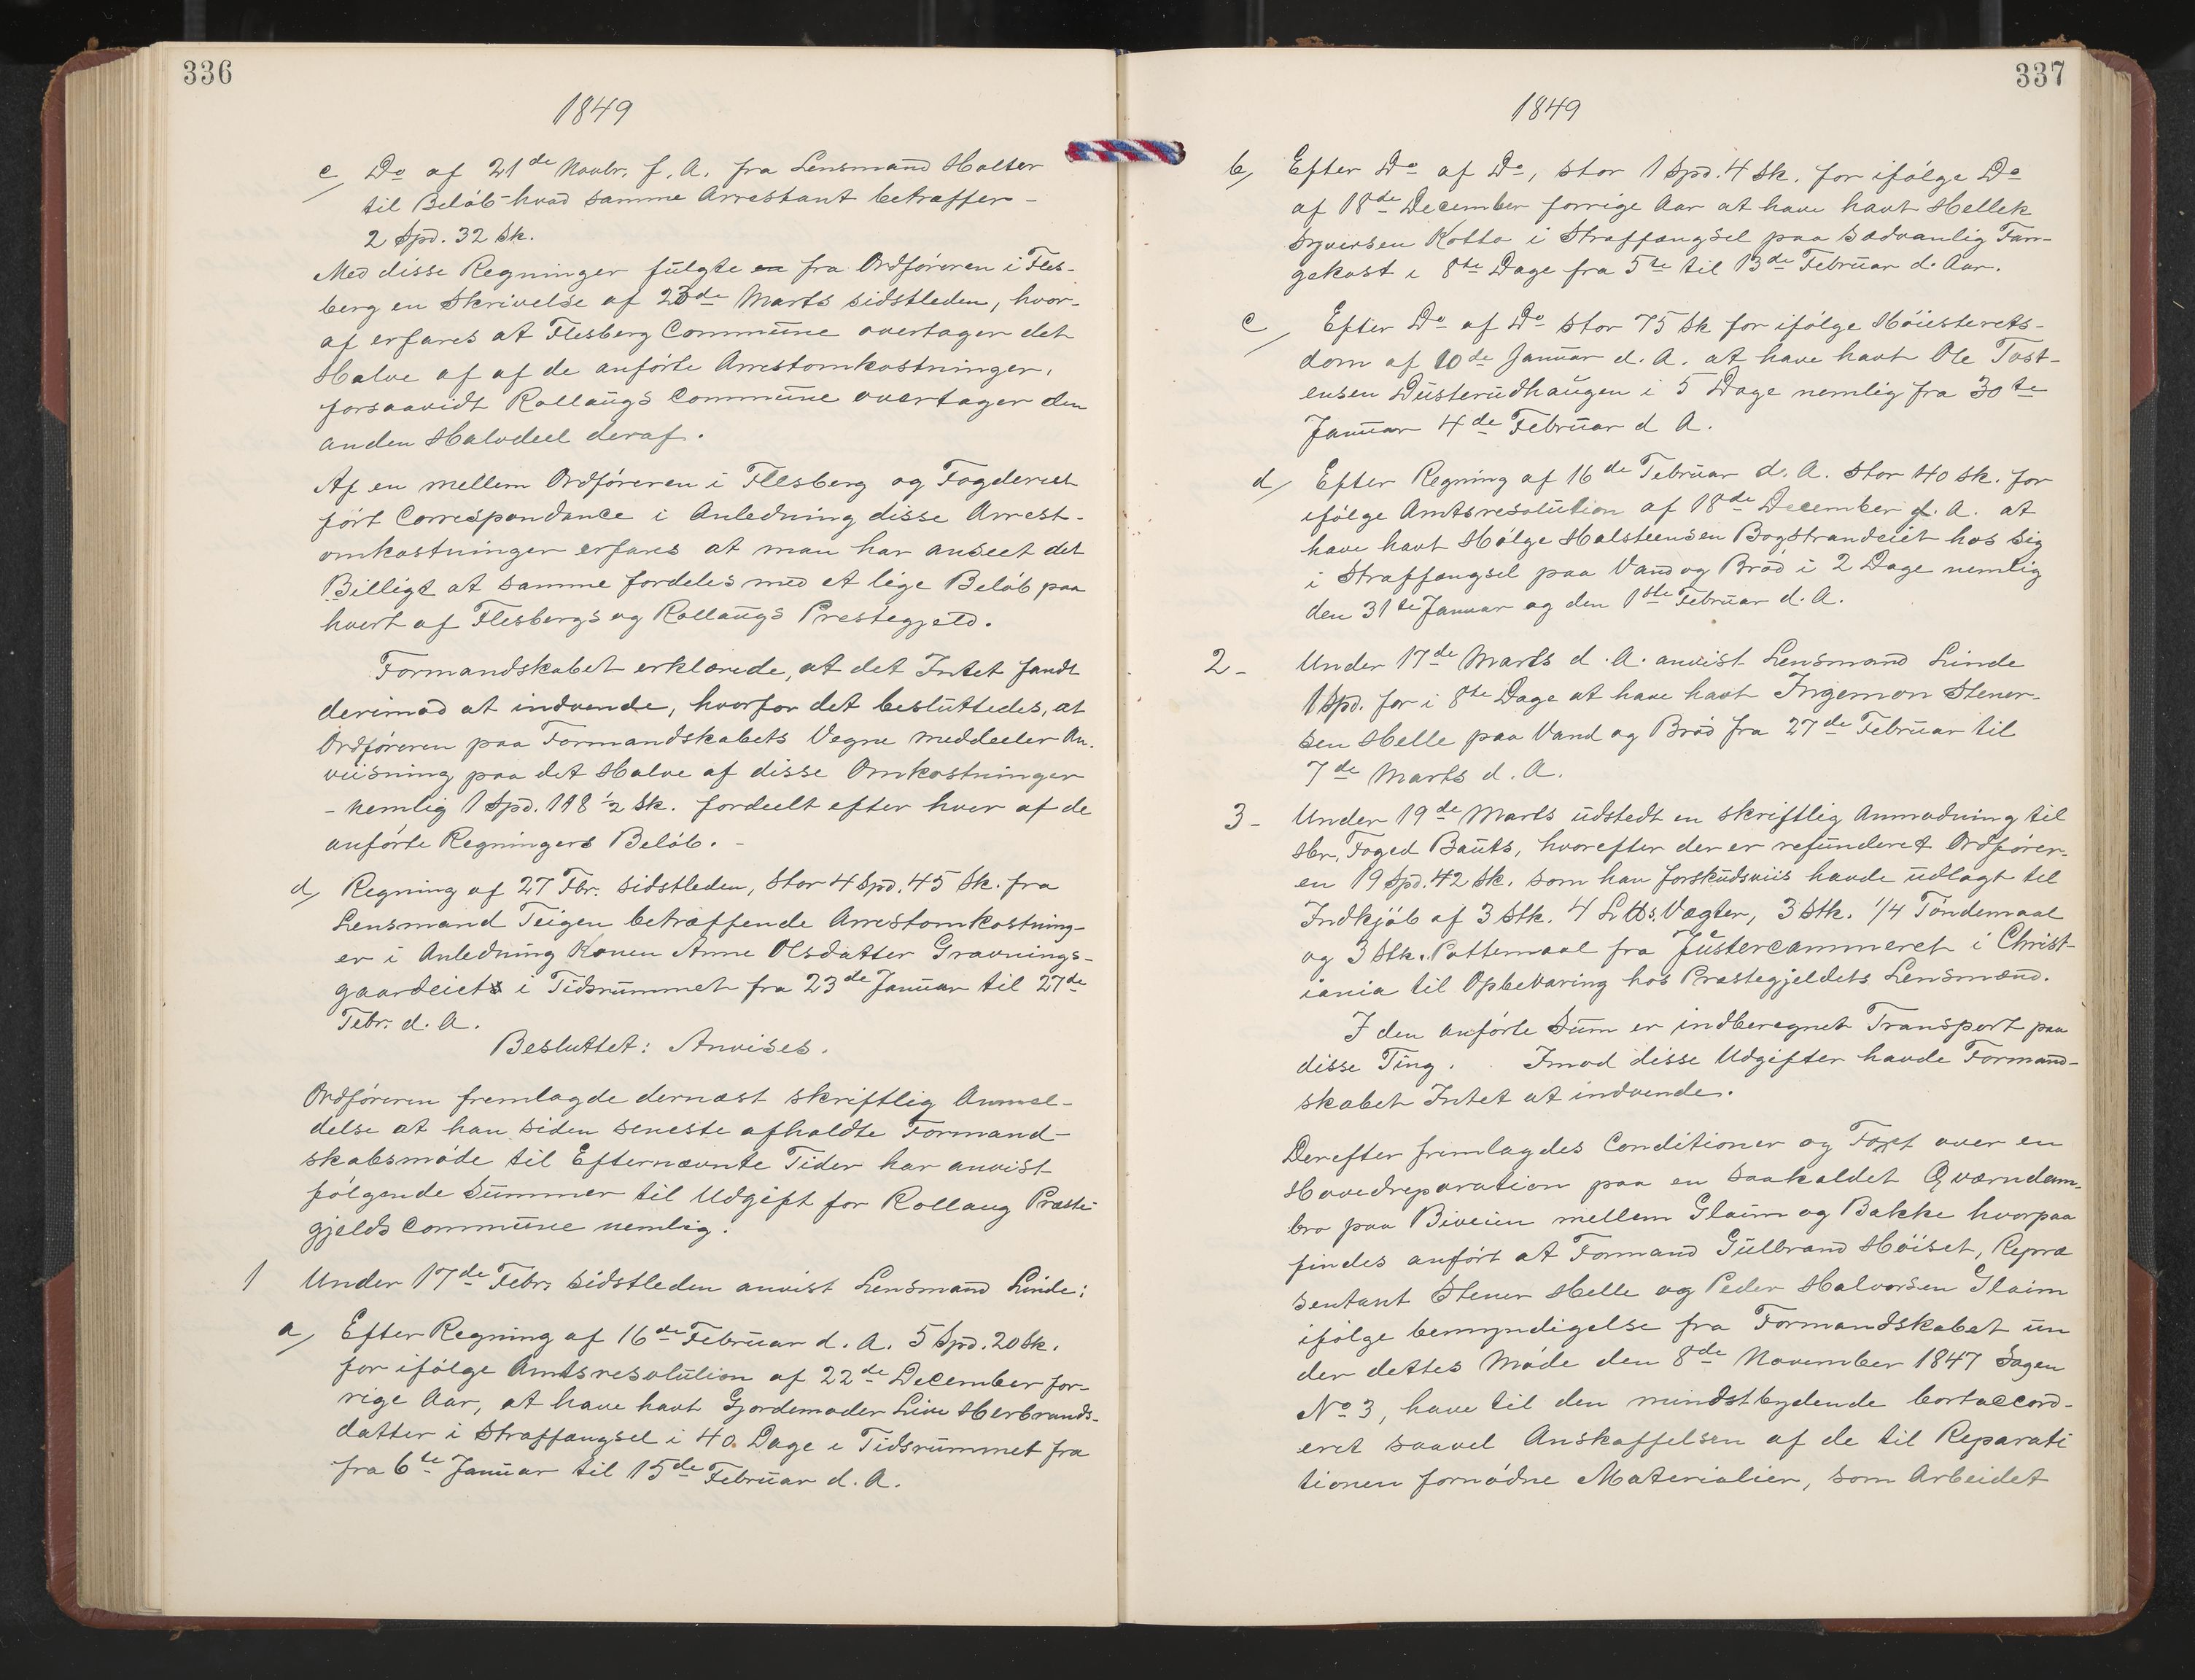 336
1849
c/ Do af 21de Novbr. f. A. fra Lensmand Holter
til Beløb - hvad samme Arrestant betræffer -
2 Spd. 32 Sk.
Med disse Regninger fulgte en fra Ordføreren i Fles-
berg en Skrivelse af 23de Marts sidstleden, hvor-
af erfares at Flesberg Commune overtager det
Halve af af de anførte Arrestomkostninger,
forsaavidt Rollaugs Commune overtager den
anden Halvdeel deraf.
Af en mellem Ordføreren i Flesberg og Fogderiet
ført Correspondance i Anledning disse Arrest-
omkostninger erfares at man har anseet det
Billigt at samme fordeles med et lige Beløb paa
hvert af Flesbergs og Rollaugs Prestegjeld.
Formandskabet erklærede, at det Intet fandt
derimod at indvende, hvorfor det besluttedes, at
Ordføreren paa Formandskabets Vegne meddeeler An-
viisning paa det Halve af disse Omkostninger
- nemlig 1 Spd. 118 1/2 Sk. fordeelt efter hver af de
anførte Regningers Beløb. -
d/ Regning af 27 Fbr. sidstleden, stor 4 Spd. 45 Sk. fra
Lensmand Teigen betræffende Arrestomkostning-
er i Anledning Konen Anne Olsdatter Gravnings-
gaardeiet i Tidsrummet fra 23de Januar til 27de
Febr. d. A.
Besluttet: Anvises.
Ordføreren fremlagde dernæst skriftlig Anmel-
delse at han siden seneste afholdte Formand-
skabsmøde til Efternævnte Tider har anvist
følgende Summer til Udgift for Rollaug Præste-
gjelds Commune nemlig.
1 Under 17de Febr. sidstleden anvist Lensmand Linde:
a/ Efter Regning af 16de Februar d. A. 5 Spd. 20 Sk.
for ifølge Amtsresolution af 22de December for-
rige Aar, at have havt Gjordemoder Live Herbrands-
datter i Straffangsel i 40 Dage i Tidsrummet fra
fra 6te Januar til 15de Februar d. A.
337
1849
b/ Efter Do af Do, stor 1 Spd. 4 Sk. for ifølge Do
af 18de December forrige Aar at have havt Hellek
Syversen Kotta i Straffangsel paa sædvanlig Fan-
gekost i 8te Dage fra 5te til 13de Februar d. Aar.
c/ Efter Do af Do stor 75 Sk for ifølge Høiesterets-
dom af 10de Januar d. A. at have havt Ole Tost-
ensen Dusterudhaugen i 5 Dage nemlig fra 30te
Januar 4de Februar d A.
d/ Efter Regning af 16de Februar d. A. stor 40 Sk. for
ifølge Amtsresolution af 18de December f. A. at
have havt Hølge Halsteensen Bogstrandeiet hos sig
i Straffangsel paa Vand og Brød i 2 Dage nemlig
den 31te Januar og den 1ste Februar d. A.
2 - Under 17de Marts d. A. anvist Lensmand Linde
1 Spd. for i 8te Dage at have havt Ingemon Stener-
sen Helle paa Vand og Brød fra 27de Februar til
7de Marts d. A.
3 - Under 19de Marts udstedt en skriftlig Anmodning til
Hr. Foged Bauts, hvorefter der er refunderet Ordfører-
en 19 Spd. 42 Sk. som han forskudsviis havde udlagt til
Indkjøb af 3 Stk. 4 Vægter, 3 Stk. 1/4 Tøndemaal
og 3 Stk. Pottemaal fra Justercammeret i Christ-
iania til Opbevaring hos Præstegjeldets Lensmænd.
I den anførte Sum er indberegnet Transport paa
disse Ting. Imod disse Udgifter havde Formand-
skabet Intet at indvende.
Derefter fremlagdes Conditioner og over en
Hovedreparation paa en saakaldet Qværndam-
bro paa Biveien mellem Glaim og Bakke hvorpaa
findes anført at Formand Gulbrand Høiset, Repræ
sentant Stener Helle og Peder Halvorsen Glaim
ifølge bemyndigelse fra Formandskabet un
der dettes Møde den 8de November 1847 Sagen
No 3, have til den mindstbydende bortaccord-
eret saavel Anskaffelsen af de til Reparati
tionen fornødne Materialier, som Arbeidet